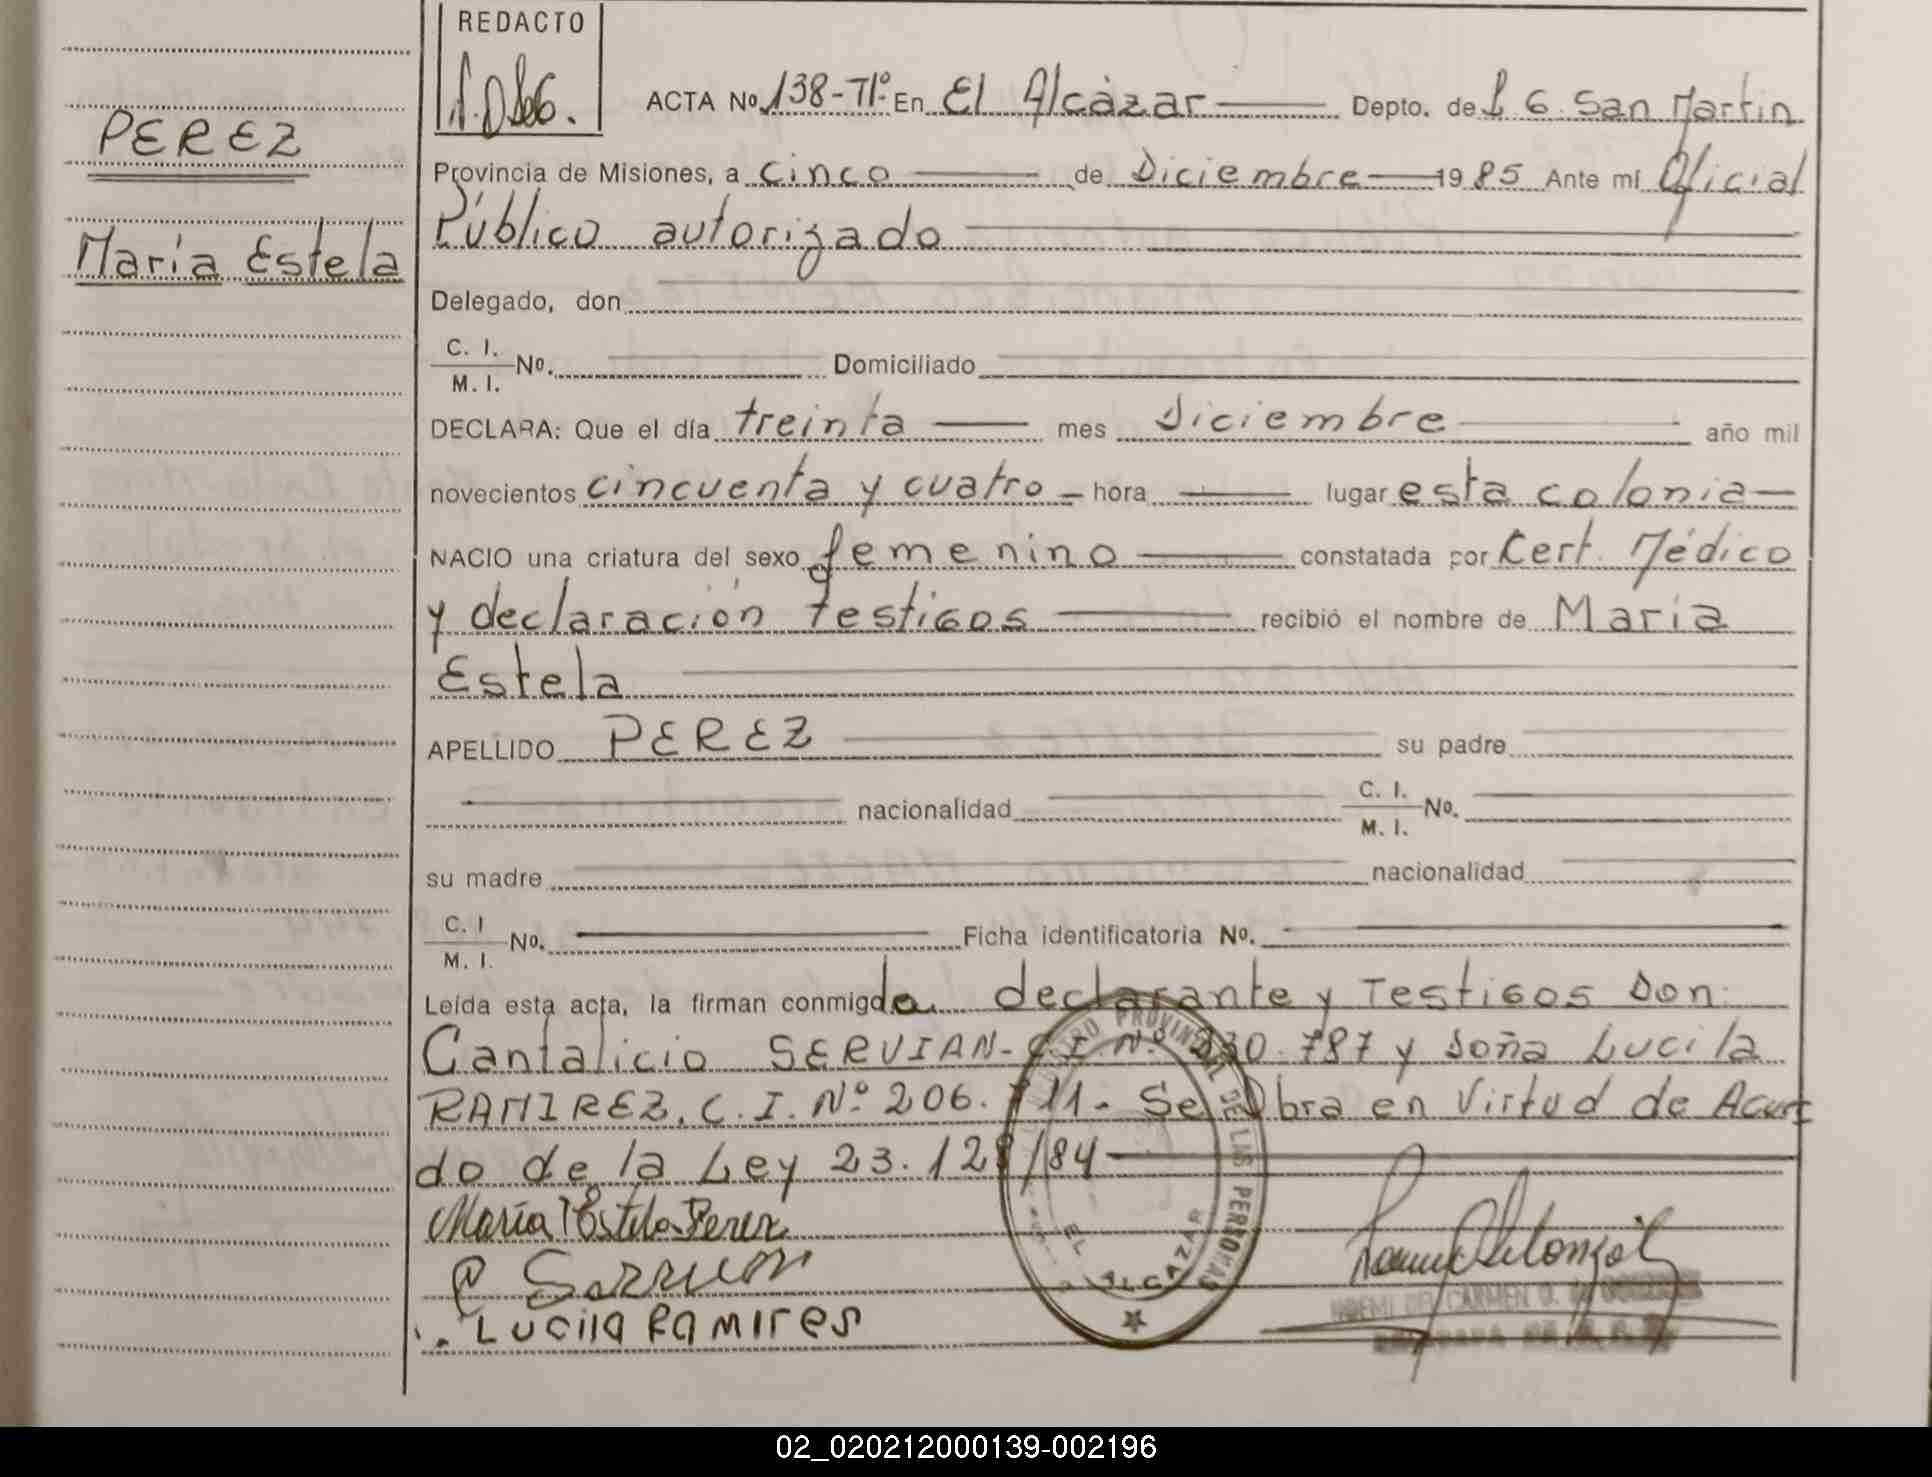 REDACTO
ACTA Nº 138-Tº En El Alcázar Depto. de L. G. San Martín
PEREZ
María Estela
Provincia de Misiones, a cinco de Diciembre 1985 Ante mí Oficial
Público autorizado
Delegado, don
C. I.
M. I. Nº. Domiciliado
DECLARA: Que el día treinta mes Diciembre año mil
novecientos cincuenta y cuatro hora lugar esta colonia
NACIO una criatura del sexo femenino constatada por Cert. Médico
y declaración testigos recibió el nombre de María
Estela
APELLIDO PEREZ su padre
nacionalidad C. I.
M. I. Nº.
su madre nacionalidad
C. I
M. I. Nº. Ficha identificatoria Nº.
Leída esta acta, la firman conmigo declarante y Testigos Don
Cantalicio SERVIAN- C.I. Nº 330.787 y Doña Lucila
RAMIREZ, C. I. Nº 206. 711.- Se Obra en Virtud de Acuer
do de la Ley 23.128/84
María Estela Perez
Lucila Ramires
REGISTRO PROVINCIAL DE LAS PERSONAS
EL ALCAZAR
NOEMI DEL CARMEN O. de
02_020212000139-002196